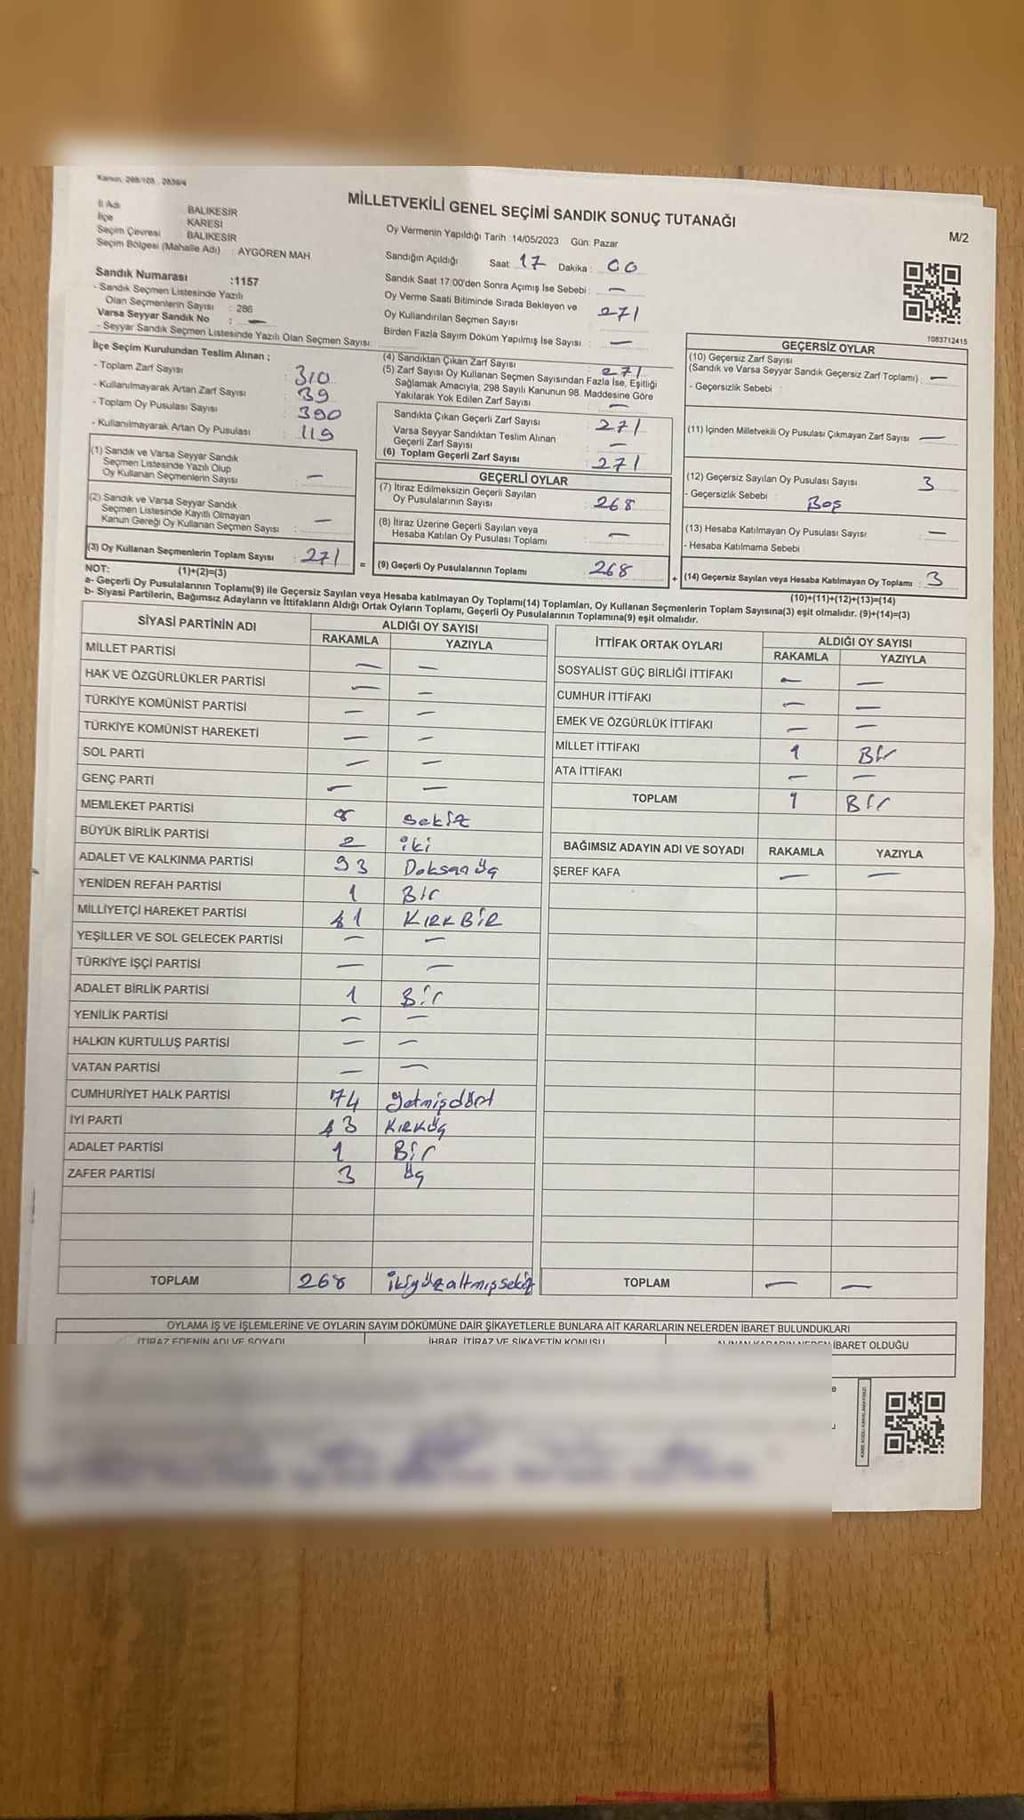 Kanun, 298/105 , 2839/4
MİLLETVEKİLİ GENEL SEÇİMİ SANDIK SONUÇ TUTANAĞI
M/2
İl Adı BALIKESİR
İlçe KARESİ
Seçim Çevresi BALIKESİR
Seçim Bölgesi (Mahalle Adı) : AYGÖREN MAH
Sandık Numarası :1157
- Sandık Seçmen Listesinde Yazılı
Olan Seçmenlerin Sayısı : 286
Varsa Seyyar Sandık No : —
- Seyyar Sandık Seçmen Listesinde Yazılı Olan Seçmen Sayısı:
Oy Vermenin Yapıldığı Tarih :14/05/2023 Gün: Pazar
Sandığın Açıldığı Saat 17 Dakika : 00
Sandık Saat 17:00'den Sonra Açımış İse Sebebi : —
Oy Verme Saati Bitiminde Sırada Bekleyen ve
Oy Kullandırılan Seçmen Sayısı : 271
Birden Fazla Sayım Döküm Yapılmış İse Sayısı : —
1083712415
İlçe Seçim Kurulundan Teslim Alınan ;
- Toplam Zarf Sayısı : 310
- Kullanılmayarak Artan Zarf Sayısı : 39
- Toplam Oy Pusulası Sayısı : 390
- Kullanılmayarak Artan Oy Pusulası : 119
(1) Sandık ve Varsa Seyyar Sandık
Seçmen Listesinde Yazılı Olup
Oy Kullanan Seçmenlerin Sayısı : —
(2) Sandık ve Varsa Seyyar Sandık
Seçmen Listesinde Kayıtlı Olmayan
Kanun Gereği Oy Kullanan Seçmen Sayısı : —
(3) Oy Kullanan Seçmenlerin Toplam Sayısı : 271 =
(1)+(2)=(3)
(4) Sandıktan Çıkan Zarf Sayısı : 271
(5) Zarf Sayısı Oy Kullanan Seçmen Sayısından Fazla İse, Eşitliği
Sağlamak Amacıyla, 298 Sayılı Kanunun 98. Maddesine Göre
Yakılarak Yok Edilen Zarf Sayısı : —
Sandıkta Çıkan Geçerli Zarf Sayısı : 271
Varsa Seyyar Sandıktan Teslim Alınan
Geçerli Zarf Sayısı : —
(6) Toplam Geçerli Zarf Sayısı : 271
GEÇERLİ OYLAR
(7) İtiraz Edilmeksizin Geçerli Sayılan
Oy Pusulalarının Sayısı : 268
(8) İtiraz Üzerine Geçerli Sayılan veya
Hesaba Katılan Oy Pusulası Toplamı : —
(9) Geçerli Oy Pusulalarının Toplamı : 268 +
GEÇERSİZ OYLAR
(10) Geçersiz Zarf Sayısı
(Sandık ve Varsa Seyyar Sandık Geçersiz Zarf Toplamı) : —
- Geçersizlik Sebebi :
(11) İçinden Milletvekili Oy Pusulası Çıkmayan Zarf Sayısı : —
(12) Geçersiz Sayılan Oy Pusulası Sayısı : 3
- Geçersizlik Sebebi : Boş
(13) Hesaba Katılmayan Oy Pusulası Sayısı : —
- Hesaba Katılmama Sebebi
(14) Geçersiz Sayılan veya Hesaba Katılmayan Oy Toplamı : 3
(10)+(11)+(12)+(13)=(14)
NOT:
a- Geçerli Oy Pusulalarının Toplamı(9) ile Geçersiz Sayılan veya Hesaba katılmayan Oy Toplamı(14) Toplamları, Oy Kullanan Seçmenlerin Toplam Sayısına(3) eşit olmalıdır. (9)+(14)=(3)
b- Siyasi Partilerin, Bağımsız Adayların ve İttifakların Aldığı Ortak Oyların Toplamı, Geçerli Oy Pusulalarının Toplamına(9) eşit olmalıdır.
SİYASİ PARTİNİN ADI ALDIĞI OY SAYISI
RAKAMLA YAZIYLA
MİLLET PARTİSİ — —
HAK VE ÖZGÜRLÜKLER PARTİSİ — —
TÜRKİYE KOMÜNİST PARTİSİ — —
TÜRKİYE KOMÜNİST HAREKETİ — —
SOL PARTİ — —
GENÇ PARTİ — —
MEMLEKET PARTİSİ 8 sekiz
BÜYÜK BİRLİK PARTİSİ 2 iki
ADALET VE KALKINMA PARTİSİ 93 Doksanüç
YENİDEN REFAH PARTİSİ 1 Bir
MİLLİYETÇİ HAREKET PARTİSİ 41 KIRKBİR
YEŞİLLER VE SOL GELECEK PARTİSİ — —
TÜRKİYE İŞÇİ PARTİSİ — —
ADALET BİRLİK PARTİSİ 1 Bir
YENİLİK PARTİSİ — —
HALKIN KURTULUŞ PARTİSİ — —
VATAN PARTİSİ — —
CUMHURİYET HALK PARTİSİ 74 yetmişdört
İYİ PARTİ 43 KIRKÜÇ
ADALET PARTİSİ 1 Bir
ZAFER PARTİSİ 3 üç
TOPLAM 268 ikiyüzaltmışsekiz
İTTİFAK ORTAK OYLARI ALDIĞI OY SAYISI
RAKAMLA YAZIYLA
SOSYALİST GÜÇ BİRLİĞİ İTTİFAKI — —
CUMHUR İTTİFAKI — —
EMEK VE ÖZGÜRLÜK İTTİFAKI — —
MİLLET İTTİFAKI 1 Bir
ATA İTTİFAKI — —
TOPLAM 1 Bir
BAĞIMSIZ ADAYIN ADI VE SOYADI RAKAMLA YAZIYLA
ŞEREF KAFA — —
TOPLAM — —
OYLAMA İŞ VE İŞLEMLERİNE VE OYLARIN SAYIM DÖKÜMÜNE DAİR ŞİKAYETLERLE BUNLARA AİT KARARLARIN NELERDEN İBARET BULUNDUKLARI
İTİRAZ EDENİN ADI VE SOYADI İHBAR, İTİRAZ VE ŞİKAYETİN KONUSU ALINAN KARARIN NEDEN İBARET OLDUĞU